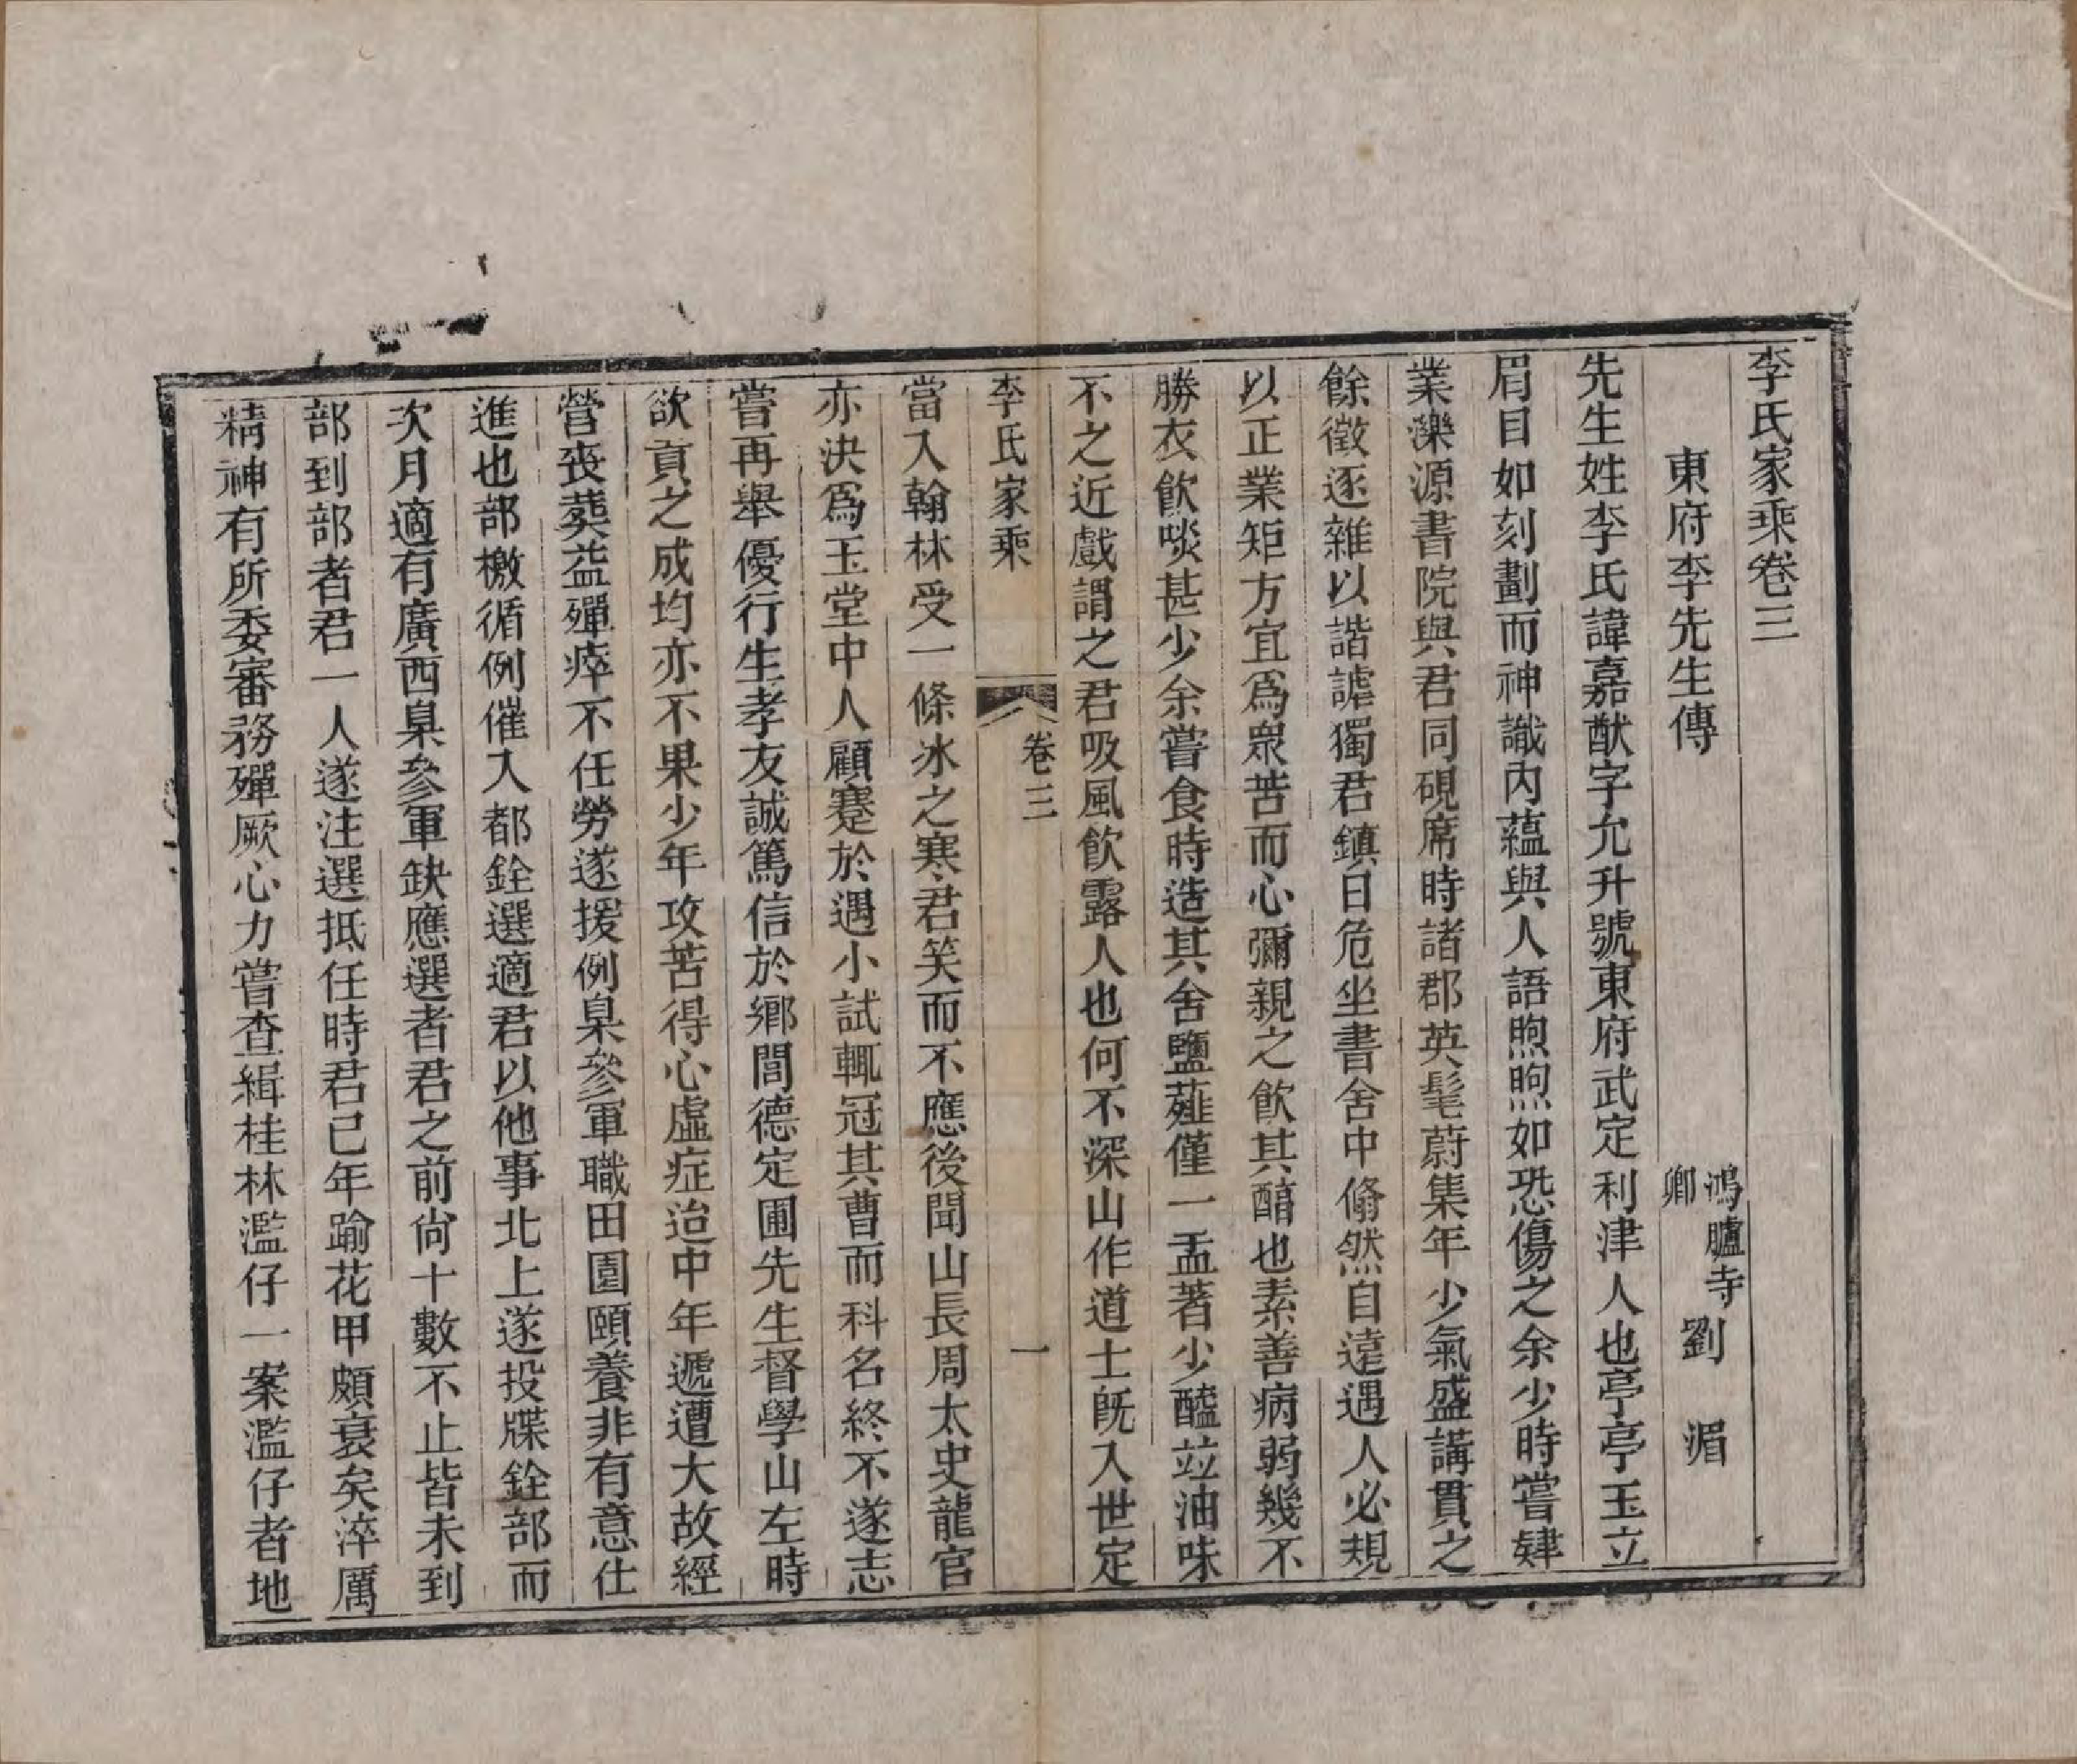 李氏家乘卷三
東府李先生傳 鴻臚寺卿 劉 湄
先生姓李氏諱嘉猷字允升號東府武定利津人也亭亭玉立
眉目如刻劃而神識內蘊與人語煦煦如恐傷之余少時嘗肄
業濼源書院與君同硯席時諸郡英髦蔚集年少氣盛講貫之
餘徵逐雜以諧謔獨君鎮日危坐書舍中翛然自遠遇人必規
以正業矩方宜為衆苦而心彌親之飲其醕也素善病弱幾不
勝衣飲啖甚少余嘗食時造其舍鹽薤僅一盂著少醯竝油味
不之近戲謂之君吸風飲露人也何不深山作道士旣入世定
李氏家乘 卷三 一
當入翰林受一條冰之寒君笑而不應後聞山長周太史龍官
亦決爲玉堂中人顧蹇於遇小試輒冠其曹而科名終不遂志
嘗再舉優行生孝友誠篤信於鄉閭德定圃先生督學山左時
欲貢之成均亦不果少年攻苦得心虛症迨中年遞遭大故經
營喪葬益殫瘁不任勞遂援例臬參軍職田園頤養非有意仕
進也部檄循例催入都銓選適君以他事北上遂投牒銓部而
次月適有廣西臬參軍缺應選者君之前尙十數不止皆未到
部到部者君一人遂注選抵任時君已年踰花甲頗衰矣淬厲
精神有所委審務殫厥心力嘗查緝桂林濫仔一案濫仔者地